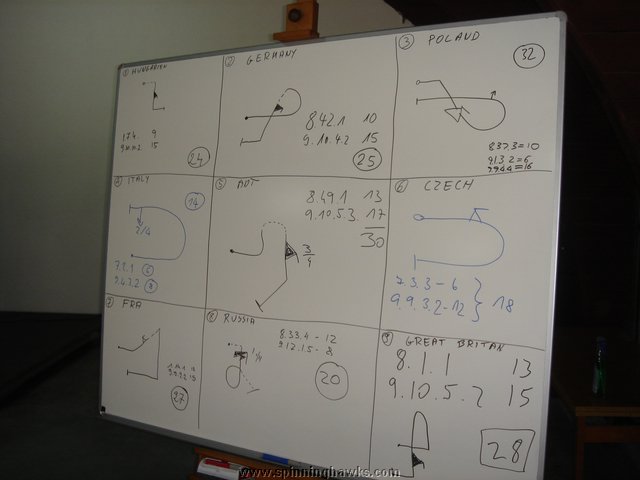 ① HUNGARIEN
17.4. 9
15
24
② GERMANY
8.42.1 10
9.10.4.2 15
25
③ POLAND
32
8.37.3=10
9.1.3.2=6
9.9.4.4=16
④ ITALY
14
2/4
7.2.1 6
9.4.3.2 8
⑤ AUT
8.49.1 13
9.10.5.3 17
30
3/4
⑥ CZECH
7.3.3 - 6
9.9.3.2 - 12
18
⑦ FRA
27
⑧ RUSSIA
8.33.4 - 12
9.12.1.5 - 8
1 1/4
20
⑨ GREAT BRITAN
8.1.1 13
9.10.5.2 15
28
www.spinninghawks.com